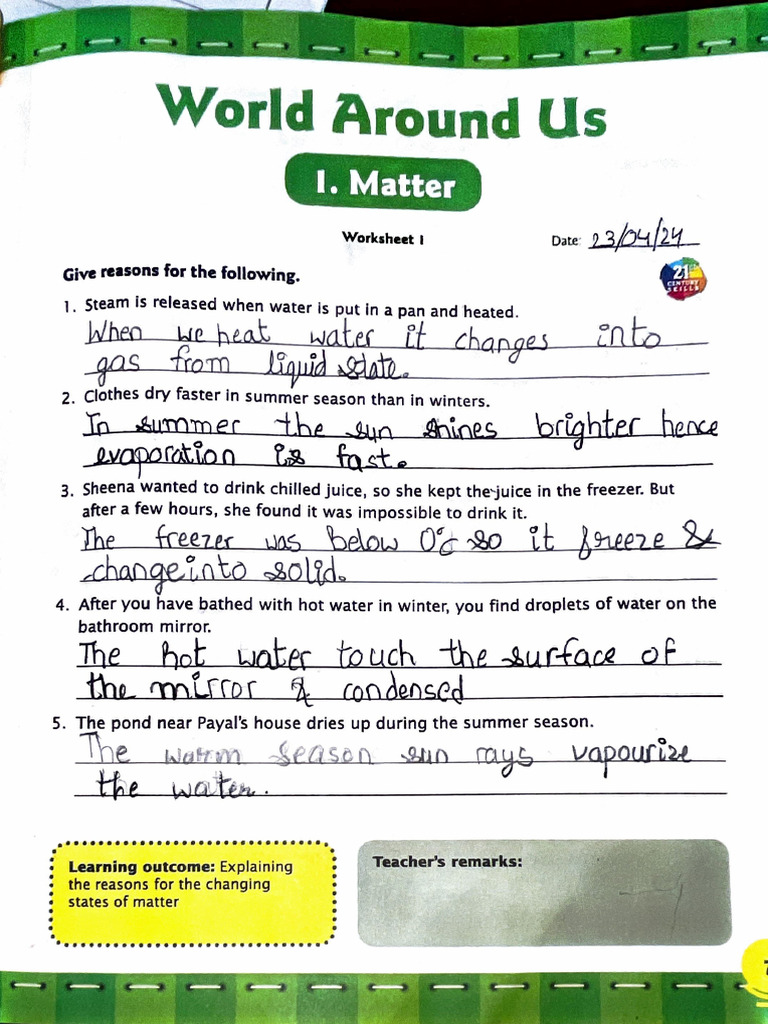 World Around Us
1. Matter
Worksheet 1
Date: 23/04/24
Give reasons for the following.
21st
CENTURY
SKILLS
1. Steam is released when water is put in a pan and heated.
When we heat water it changes into
gas from liquid state.
2. Clothes dry faster in summer season than in winters.
In summer the sun shines brighter hence
evaporation is fast.
3. Sheena wanted to drink chilled juice, so she kept the juice in the freezer. But
after a few hours, she found it was impossible to drink it.
The freezer was below 0°c so it freeze &
change into solid.
4. After you have bathed with hot water in winter, you find droplets of water on the
bathroom mirror.
The hot water touch the surface of
the mirror & condensed
5. The pond near Payal's house dries up during the summer season.
The warm season sun rays vapourize
the water.
Learning outcome: Explaining
the reasons for the changing
states of matter
Teacher's remarks: